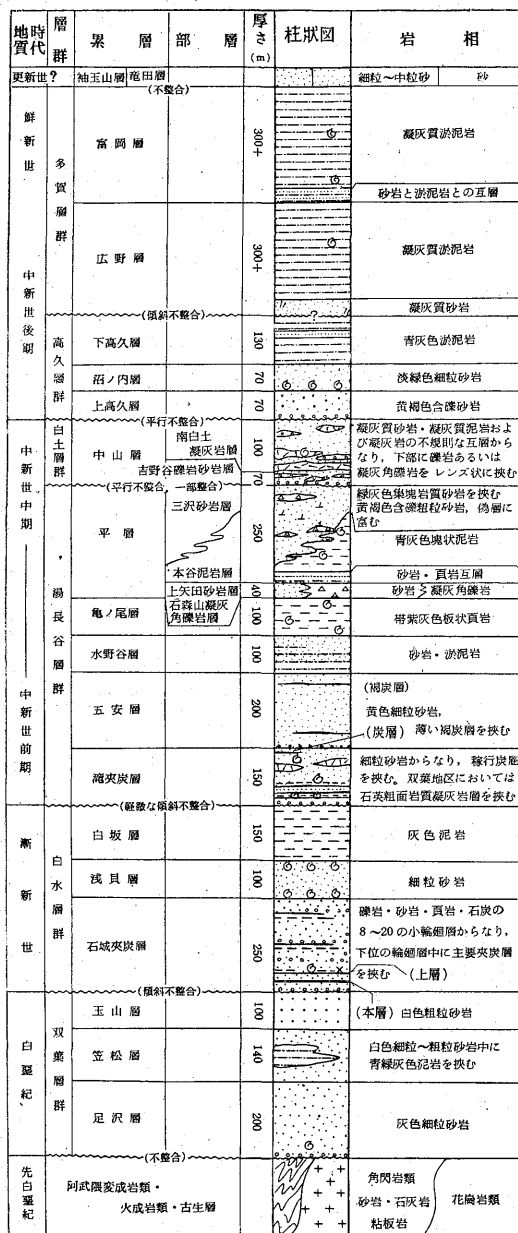 地質時代 層群 累層 部層 厚さ(m) 柱状図 岩相
更新世? 袖玉山層 竜田層 細粒~中粒砂 砂
(不整合)
鮮新世
多賀層群
富岡層 300+ 凝灰質淤泥岩
砂岩と淤泥岩との互層
広野層 300+ 凝灰質淤泥岩
凝灰質砂岩
中新世後期
(傾斜不整合) ?
高久層群
下高久層 130 青灰色淤泥岩
沼ノ内層 70 淡緑色細粒砂岩
上高久層 70 黄褐色含礫砂岩
(平行不整合)
中新世中期
白土層群
中山層 100
南白土
凝灰岩層
吉野谷礫岩砂岩層 70
凝灰質砂岩・凝灰質泥岩およ
び凝灰岩の不規則な互層から
なり,下部に礫岩あるいは
凝灰角礫岩を レンズ状に挟む
(平行不整合,一部整合)
湯長谷層群
平層 250
三沢砂岩層
緑灰色集塊岩質砂岩を挟む
黄褐色含礫粗粒砂岩,偽層に
富む
青灰色塊状泥岩
本谷泥岩層 砂岩・頁岩互層
上矢田砂岩層 40 砂岩~凝灰角礫岩
石森山凝灰
角礫岩層
亀ノ尾層 100 帯紫灰色板状頁岩
水野谷層 100 砂岩・淤泥岩
中新世前期
五安層 200
(褐炭層)
黄色細粒砂岩,
(炭層) 薄い褐炭層を挟む
滝夾炭層 150
細粒砂岩からなり,稼行炭層
を挟む。双葉地区においては
石英粗面岩質凝灰岩層を挟む
(軽微な傾斜不整合)
漸新世
白水層群
白坂層 150 灰色泥岩
浅貝層 100 細粒砂岩
石城夾炭層 250
礫岩・砂岩・頁岩・石炭の
8~20の小輪廻層からなり,
下位の輪廻層中に主要夾炭層
を挟む (上層)
(傾斜不整合)
(本層)
白堊紀
双葉層群
玉山層 100 白色粗粒砂岩
笠松層 140
白色細粒~粗粒砂岩中に
青緑灰色泥岩を挟む
足沢層 200 灰色細粒砂岩
(不整合)
先白堊紀
阿武隈変成岩類・
火成岩類・古生層
角閃岩類
砂岩・石灰岩
粘板岩
花崗岩類